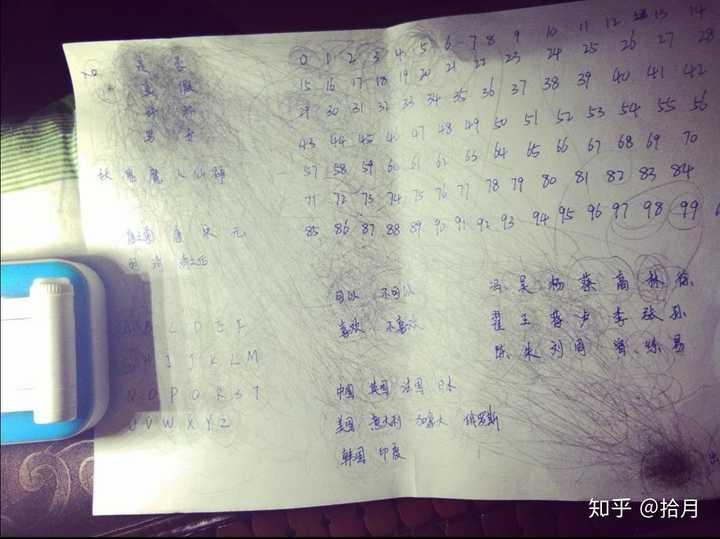 是 否
真 假
好 坏
男 女
妖 鬼 魔 人 仙 神
唐 宋 元
明 清
A B C D E F
G H I J K L M
N O P Q R S T
U V W X Y Z
0 1 2 3 4 5 6 7 8 9 10 11 12 13 14
15 16 17 18 19 20 21 22 23 24 25 26 27 28
29 30 31 32 33 34 35 36 37 38 39 40 41 42
43 44 45 46 47 48 49 50 51 52 53 54 55 56
57 58 59 60 61 62 63 64 65 66 67 68 69 70
71 72 73 74 75 76 77 78 79 80 81 82 83 84
85 86 87 88 89 90 91 92 93 94 95 96 97 98 99
可以 不可以
喜欢 不喜欢
冯 吴 杨 蔡 高 林 徐
翟 王 蒋 卢 李 张 孙
陈 朱 刘 周 曾 易
中国 英国 法国 日本
美国 意大利 加拿大 俄罗斯
韩国 印度
知乎 @拾月